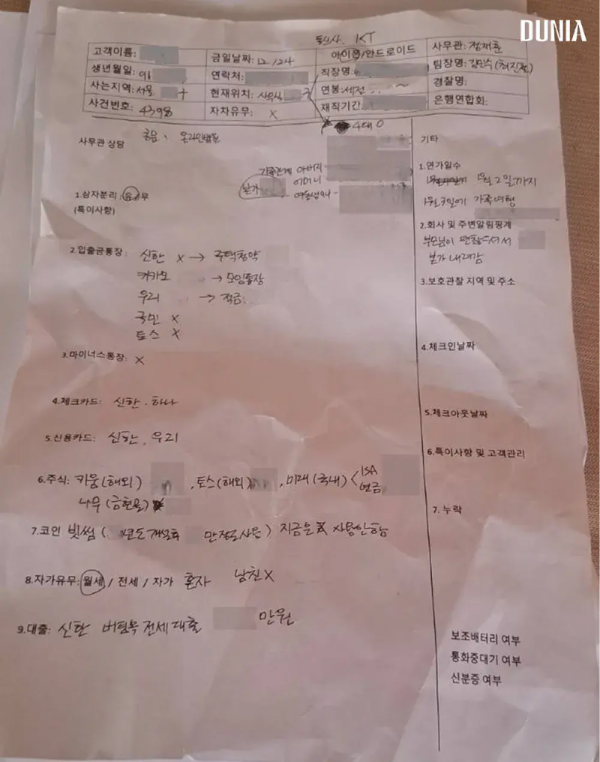 DUNIA
통신사 KT
고객이름:
금일날짜: 12/24
아이폰/안드로이드
사무관:
생년월일: 91
연락처:
직장명:
팀장명:
사는지역: 서울
현재위치:
연봉: 세전
경찰명:
사건번호: 4398
자차유무: X
재직기간:
은행연합회:
4대 O
사무관 상담
기타
가족관계 아버지
본가 어머니
1.삼자분리: 유/무
(특이사항)
1.연가일수
1월 2일까지
1월 3일에 가족여행
2.회사 및 주변알림핑계
부모님이 편찮으셔서
본가 내려감
2.입출금통장: 신한 X → 주택청약
카카오 → 모임통장
우리 → 적금
국민 X
토스 X
3.보호관찰 지역 및 주소
3.마이너스통장: X
4.체크인날짜
4.체크카드: 신한. 하나
5.체크아웃날짜
5.신용카드: 신한, 우리
6.특이사항 및 고객관리
6.주식: 키움(해외) , 토스(해외) , 미래(국내) < ISA
연금
나무(금현물)
7.누락
7.코인 빗썸 ( 만정도 사용) 지금은 사용안함
8.자가유무: 월세 / 전세 / 자가 혼자 남친X
9.대출: 신한 버팀목 전세대출 만원
보조배터리 여부
통화중대기 여부
신분증 여부